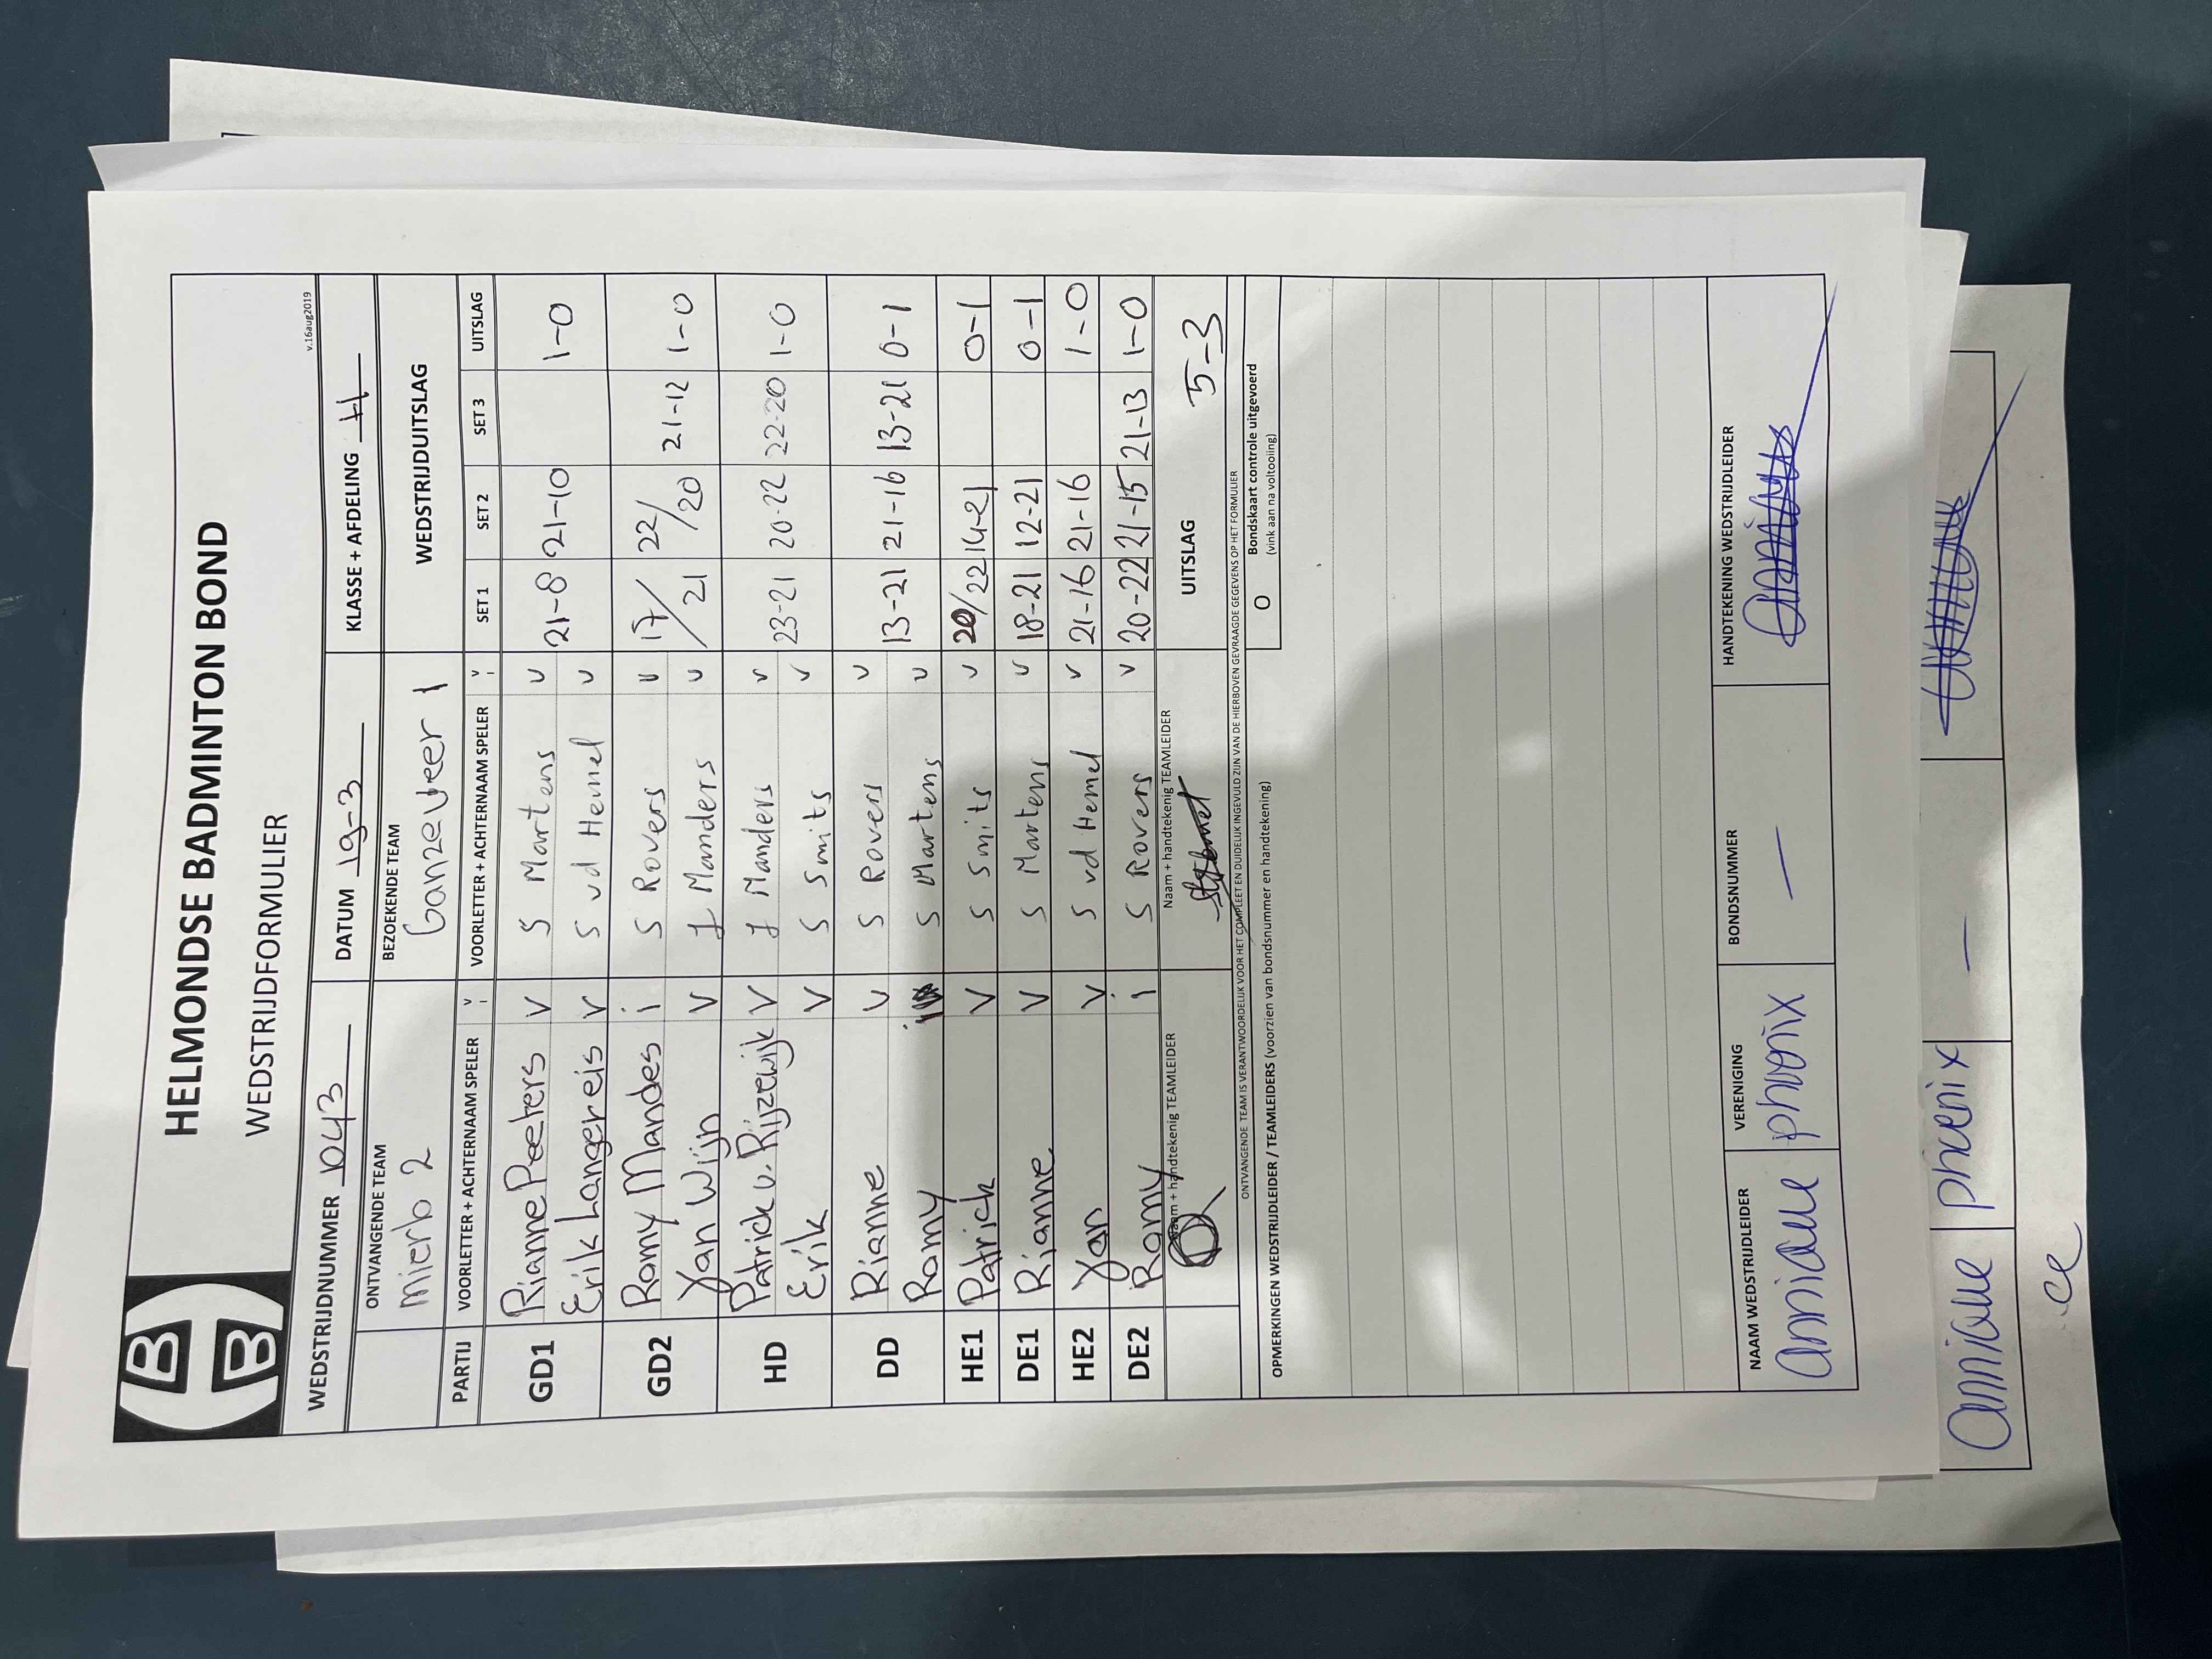 HELMONDSE BADMINTON BOND
WEDSTRIJDFORMULIER
v.16aug2019
WEDSTRIJDNUMMER 1043 DATUM 19-3 KLASSE + AFDELING H
ONTVANGENDE TEAM BEZOEKENDE TEAM WEDSTRIJDUITSLAG
mierlo 2 Ganzeveer 1
PARTIJ VOORLETTER + ACHTERNAAM SPELER V i VOORLETTER + ACHTERNAAM SPELER V i SET 1 SET 2 SET 3 UITSLAG
GD1 Rianne Peeters V S Martens v 21-8 21-10 1-0
Erik Langereis V S vd Hemel v
GD2 Romy Mandes i S Rovers v 17/21 22/20 21-12 1-0
Yan Wijn V J Manders v
HD Patrick v. Rijzewijk V J Manders v 23-21 20-22 22-20 1-0
Erik V S Smits v
DD Rianne V S Rovers v 13-21 21-16 13-21 0-1
Romy S Martens v
HE1 Patrick V S Smits v 20/22 14-21 0-1
DE1 Rianne V S Martens v 18-21 12-21 0-1
HE2 Yan V S vd Hemel v 21-16 21-16 1-0
DE2 Romy i S Rovers v 20-22 21-15 21-13 1-0
Naam + handtekenig TEAMLEIDER Naam + handtekenig TEAMLEIDER UITSLAG 5-3
ONTVANGENDE TEAM IS VERANTWOORDELIJK VOOR HET COMPLEET EN DUIDELIJK INGEVULD ZIJN VAN DE HIERBOVEN GEVRAAGDE GEGEVENS OP HET FORMULIER
OPMERKINGEN WEDSTRIJDLEIDER / TEAMLEIDERS (voorzien van bondsnummer en handtekening) O Bondskaart controle uitgevoerd
(vink aan na voltooiing)
NAAM WEDSTRIJDLEIDER VERENIGING BONDSNUMMER HANDTEKENING WEDSTRIJDLEIDER
annique phoenix —
annique phoenix —
ce